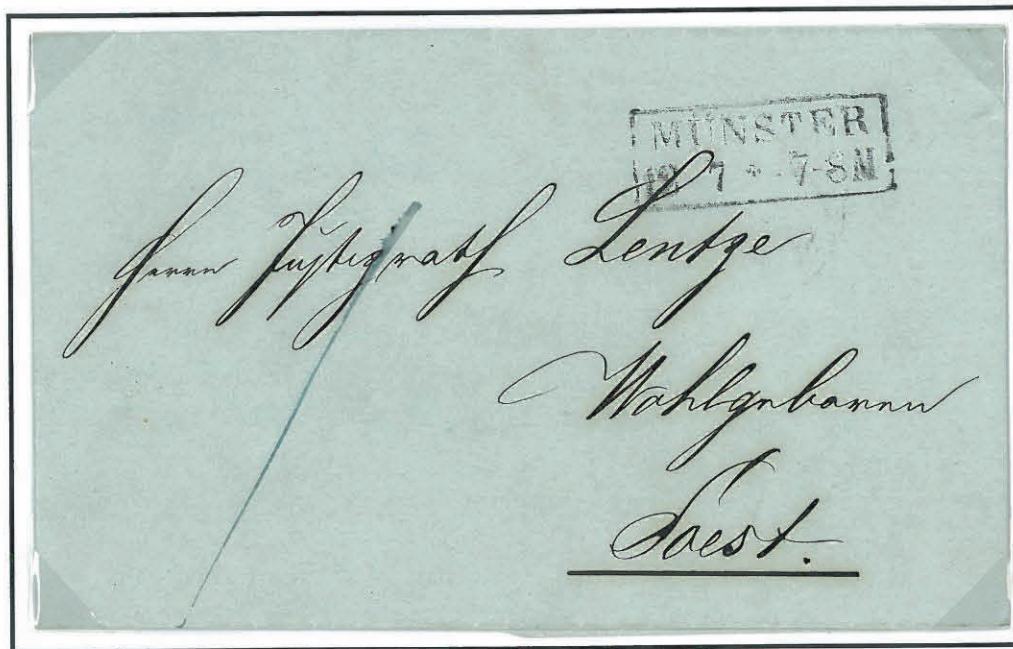 MÜNSTER
18 7 * 7-8N
Herrn Justizrath Lentze
Wohlgeboren
Soest.